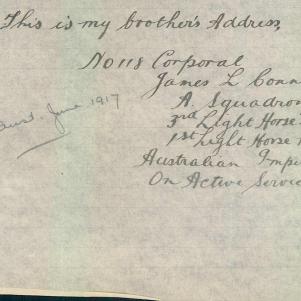 This is my brother's Address,
No 118 Corporal
James L Conn
A. Squadron
3rd Light Horse
1st Light Horse
Australian Imp
On Active Servic
June 1917